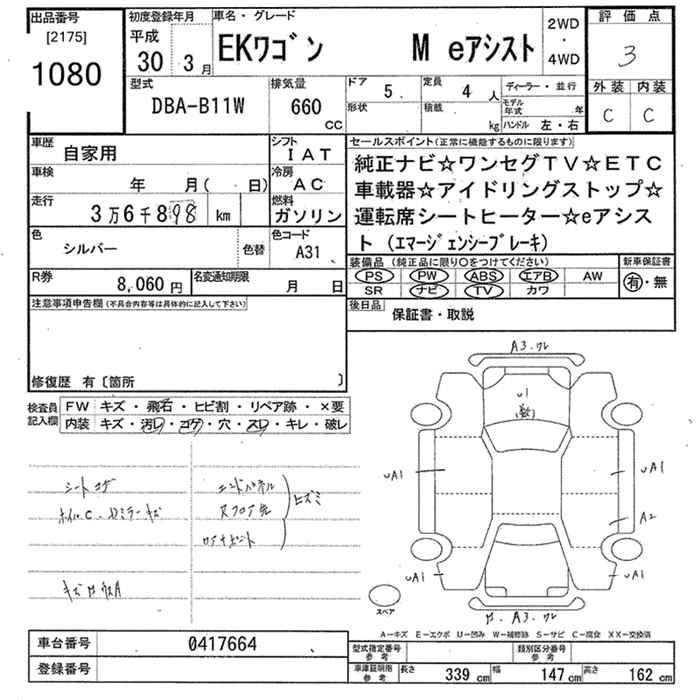 出品番号 初度登録年月 車名・グレード 評価点
[2175] 平成 2WD
1080 30年 3月 EKワゴン M eアシスト ・ 3
4WD
型式 排気量 ドア 5 定員 4人 ディーラー・並行 外装 内装
DBA-B11W 660 CC 形状 積載 kg モデル年式 年 C C
ハンドル 左・右
車歴 自家用 シフト IAT セールスポイント(正常に機能するものに限ります)
車検 年 月( 日) 冷房 AC 純正ナビ☆ワンセグTV☆ETC
走行 3万6千898 km 燃料 ガソリン 車載器☆アイドリングストップ☆
運転席シートヒーター☆eアシス
色 シルバー 色替 色コード A31 ト(エマージェンシーブレーキ)
R券 8,060円 名変通知期限 月 日 装備品(純正品に限り○をつけてください) 新車保証書
PS PW ABS エアB AW 有・無
SR ナビ TV カワ
注意事項申告欄(不具合内容等は具体的に記入して下さい) 後日品 保証書・取説
修復歴 有〔箇所 〕
検査員 FW キズ・飛石・ヒビ割・リペア跡・×要
記入欄 内装 キズ・汚レ・コゲ・穴・スレ・キレ・破レ
A3.ワレ
U1
UA1 UA1
シートコゲ エンドパネル
ホイルC・ドミラーキズ Rフロア ヒズミ
A2
UA1 UA1
スペア
A3.ワレ
A-キズ E-エクボ U-凹み W-補修跡 S-サビ C-腐食 XX-交換済
車台番号 0417664 型式指定番号 参考 類別区分番号 参考
登録番号 車庫証明用 参考 長さ 339 cm 幅 147 cm 高さ 162 cm